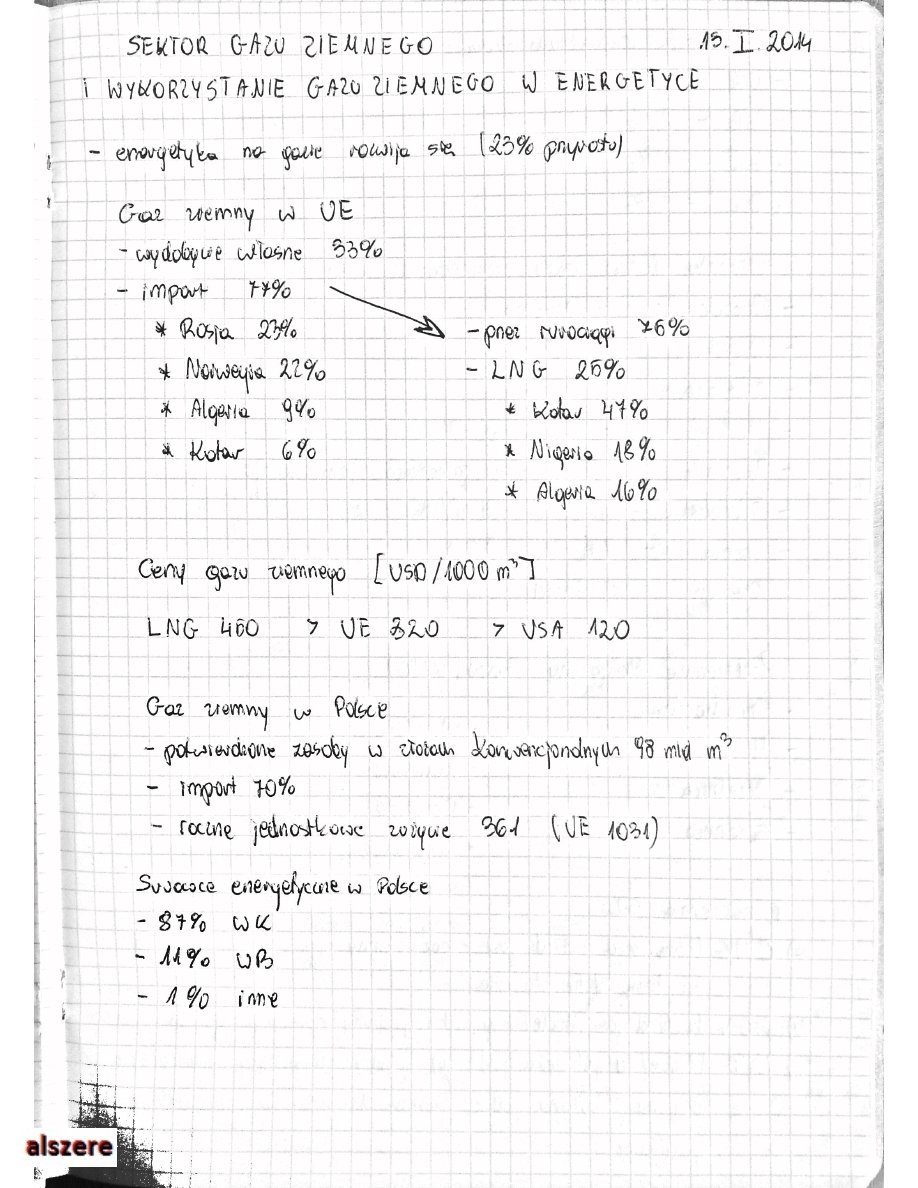 SEKTOR GAZU ZIEMNEGO
15. I. 2014
i WYKORZYSTANIE GAZU ZIEMNEGO W ENERGETYCE
- energetyka na gazie rozwija się (23% przyrostu)
Gaz ziemny w UE
- wydobycie własne 33%
- import 77%
* Rosja 23%
* Norwegia 22%
* Algeria 9%
* Katar 6%
- przez rurociągi 76%
- LNG 25%
* Katar 47%
* Nigeria 18%
* Algeria 16%
Ceny gazu ziemnego [USD/1000 m³]
LNG 460 > UE 320 > USA 120
Gaz ziemny w Polsce
- potwierdzone zasoby w złożach konwencjonalnych 98 mld m³
- import 70%
- roczne jednostkowe zużycie 361 (UE 1031)
Surowce energetyczne w Polsce
- 87% WK
- 11% WB
- 1% inne
alszere